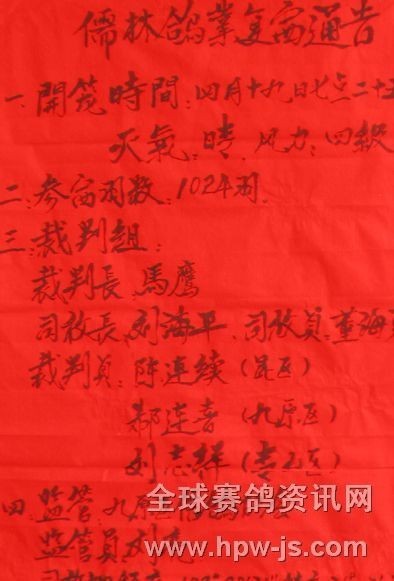 儒林鸽業复赛通告
一、開笼時間：四月十九日七点二十五
天氣：晴、风力：四級
二、参赛羽数：1024羽
三、裁判組：
裁判長：馬鷹
司放長、刘海平、司放員：董海
裁判員：陈連续（昆区）
郝连喜（九原区）
刘志祥（青山区）
四、监管：九原区
监管員：刘
全球赛鸽资讯网
www.hpw-js.com